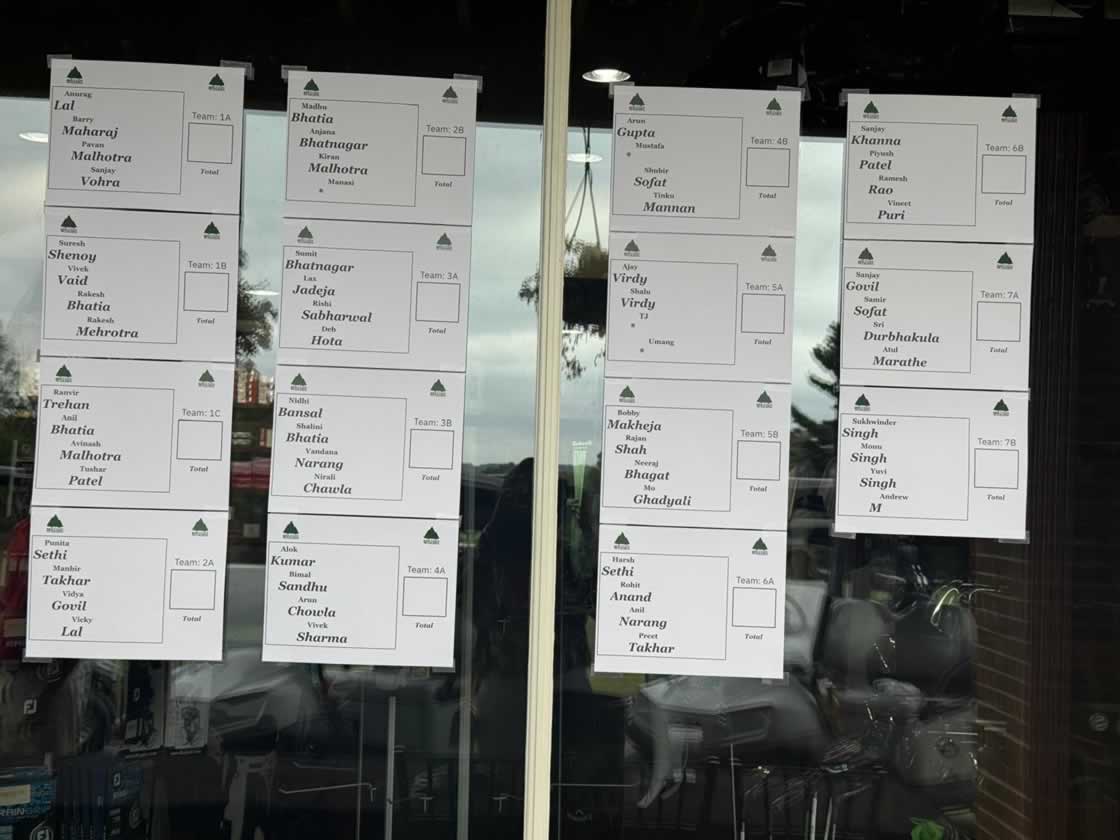 Anurag
Lal
Barry
Maharaj
Pavan
Malhotra
Sanjay
Vohra
Team: 1A
Total
Suresh
Shenoy
Vivek
Vaid
Rakesh
Bhatia
Rakesh
Mehrotra
Team: 1B
Total
Ranvir
Trehan
Anil
Bhatia
Avinash
Malhotra
Tushar
Patel
Team: 1C
Total
Punita
Sethi
Manbir
Takhar
Vidya
Govil
Vicky
Lal
Team: 2A
Total
Madhu
Bhatia
Anjana
Bhatnagar
Kiran
Malhotra
Manasi
*
Team: 2B
Total
Sumit
Bhatnagar
Lax
Jadeja
Rishi
Sabharwal
Deb
Hota
Team: 3A
Total
Nidhi
Bansal
Shalini
Bhatia
Vandana
Narang
Nirali
Chawla
Team: 3B
Total
Alok
Kumar
Bimal
Sandhu
Arun
Chowla
Vivek
Sharma
Team: 4A
Total
Arun
Gupta
Mustafa
*
Shubir
Sofat
Tinku
Mannan
Team: 4B
Total
Ajay
Virdy
Shalu
Virdy
TJ
*
Umang
*
Team: 5A
Total
Bobby
Makheja
Rajan
Shah
Neeraj
Bhagat
Mo
Ghadyali
Team: 5B
Total
Harsh
Sethi
Rohit
Anand
Anil
Narang
Preet
Takhar
Team: 6A
Total
Sanjay
Khanna
Piyush
Patel
Ramesh
Rao
Vineet
Puri
Team: 6B
Total
Sanjay
Govil
Samir
Sofat
Sri
Durbhakula
Atul
Marathe
Team: 7A
Total
Sukhwinder
Singh
Monu
Singh
Yuvi
Singh
Andrew
M
Team: 7B
Total
FJ